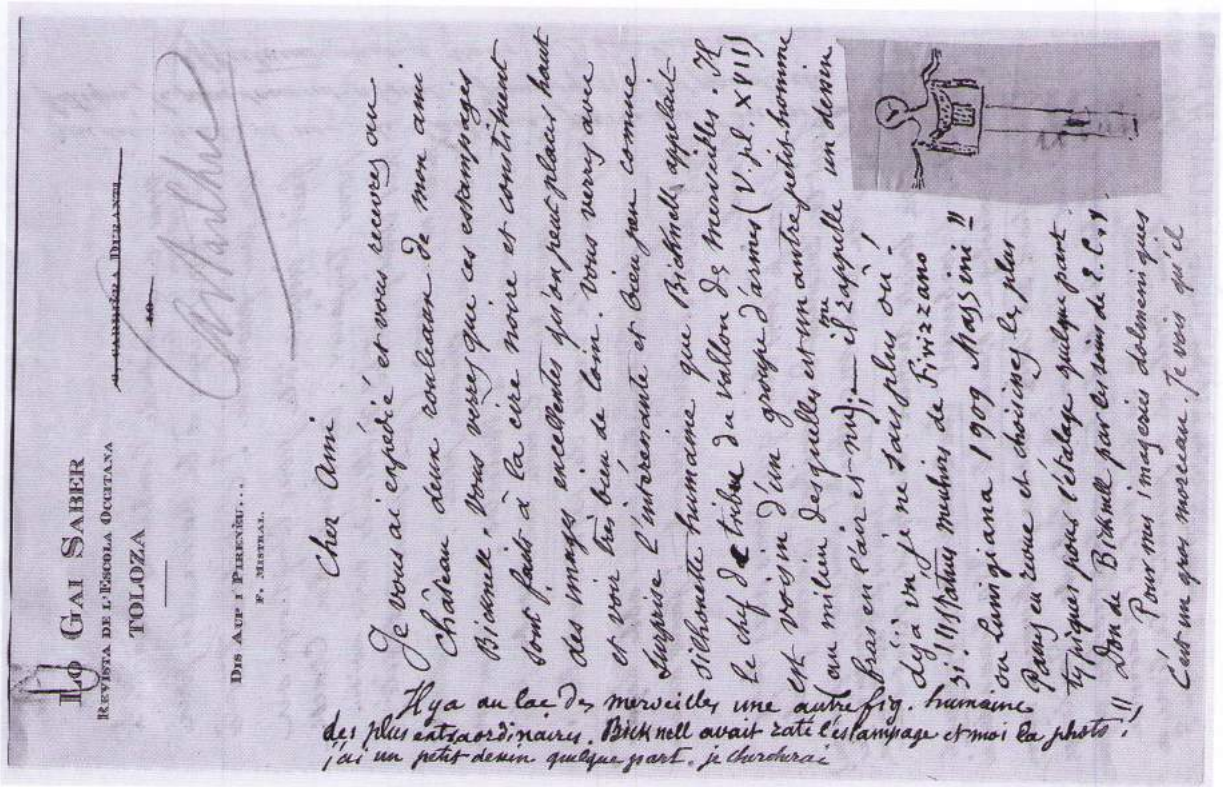 LO GAI SABER
REVISTA DE L'ESCOLA OCCITANA
TOLOZA
DIS AUP I PIRENÈU...
F. MISTRAL.
CARRIÈRA DURANTI
Cartailhac
Cher Ami
Je vous ai expédié et vous recevrez au
Château deux rouleaux de mon ami
Bicknell. Vous verrez que ces estampages
sont faits à la cire noire et constituent
des images excellentes qu'on peut placer haut
et voir très bien de loin. Vous verrez avec
surprise l'intéressante et bien peu connue
silhouette humaine que Bicknell appelait
le chef de tribu du vallon des merveilles. Il
est voisin d'un groupe d'armes (V. pl. XVIII)
(au milieu desquelles est un autre petit homme
bras en l'air et nu); — il me rappelle un dessin
déjà vu je ne sais plus où!
si! !! statues menhirs de Fivizzano
ou Lunigiana 1909 Mazzini !!
Passez en revue et choisissez les plus
typiques pour l'étalage quelque part.
!! Don de Bicknell par les soins de E. C. !!
Pour nos imageries dolméniques
C'est un gros morceau. Je vois qu'il
Il y a au lac des merveilles une autre fig. humaine
des plus extraordinaires. Bicknell avait raté l'estampage et moi la photo!
j'ai un petit dessin quelque part. je chercherai